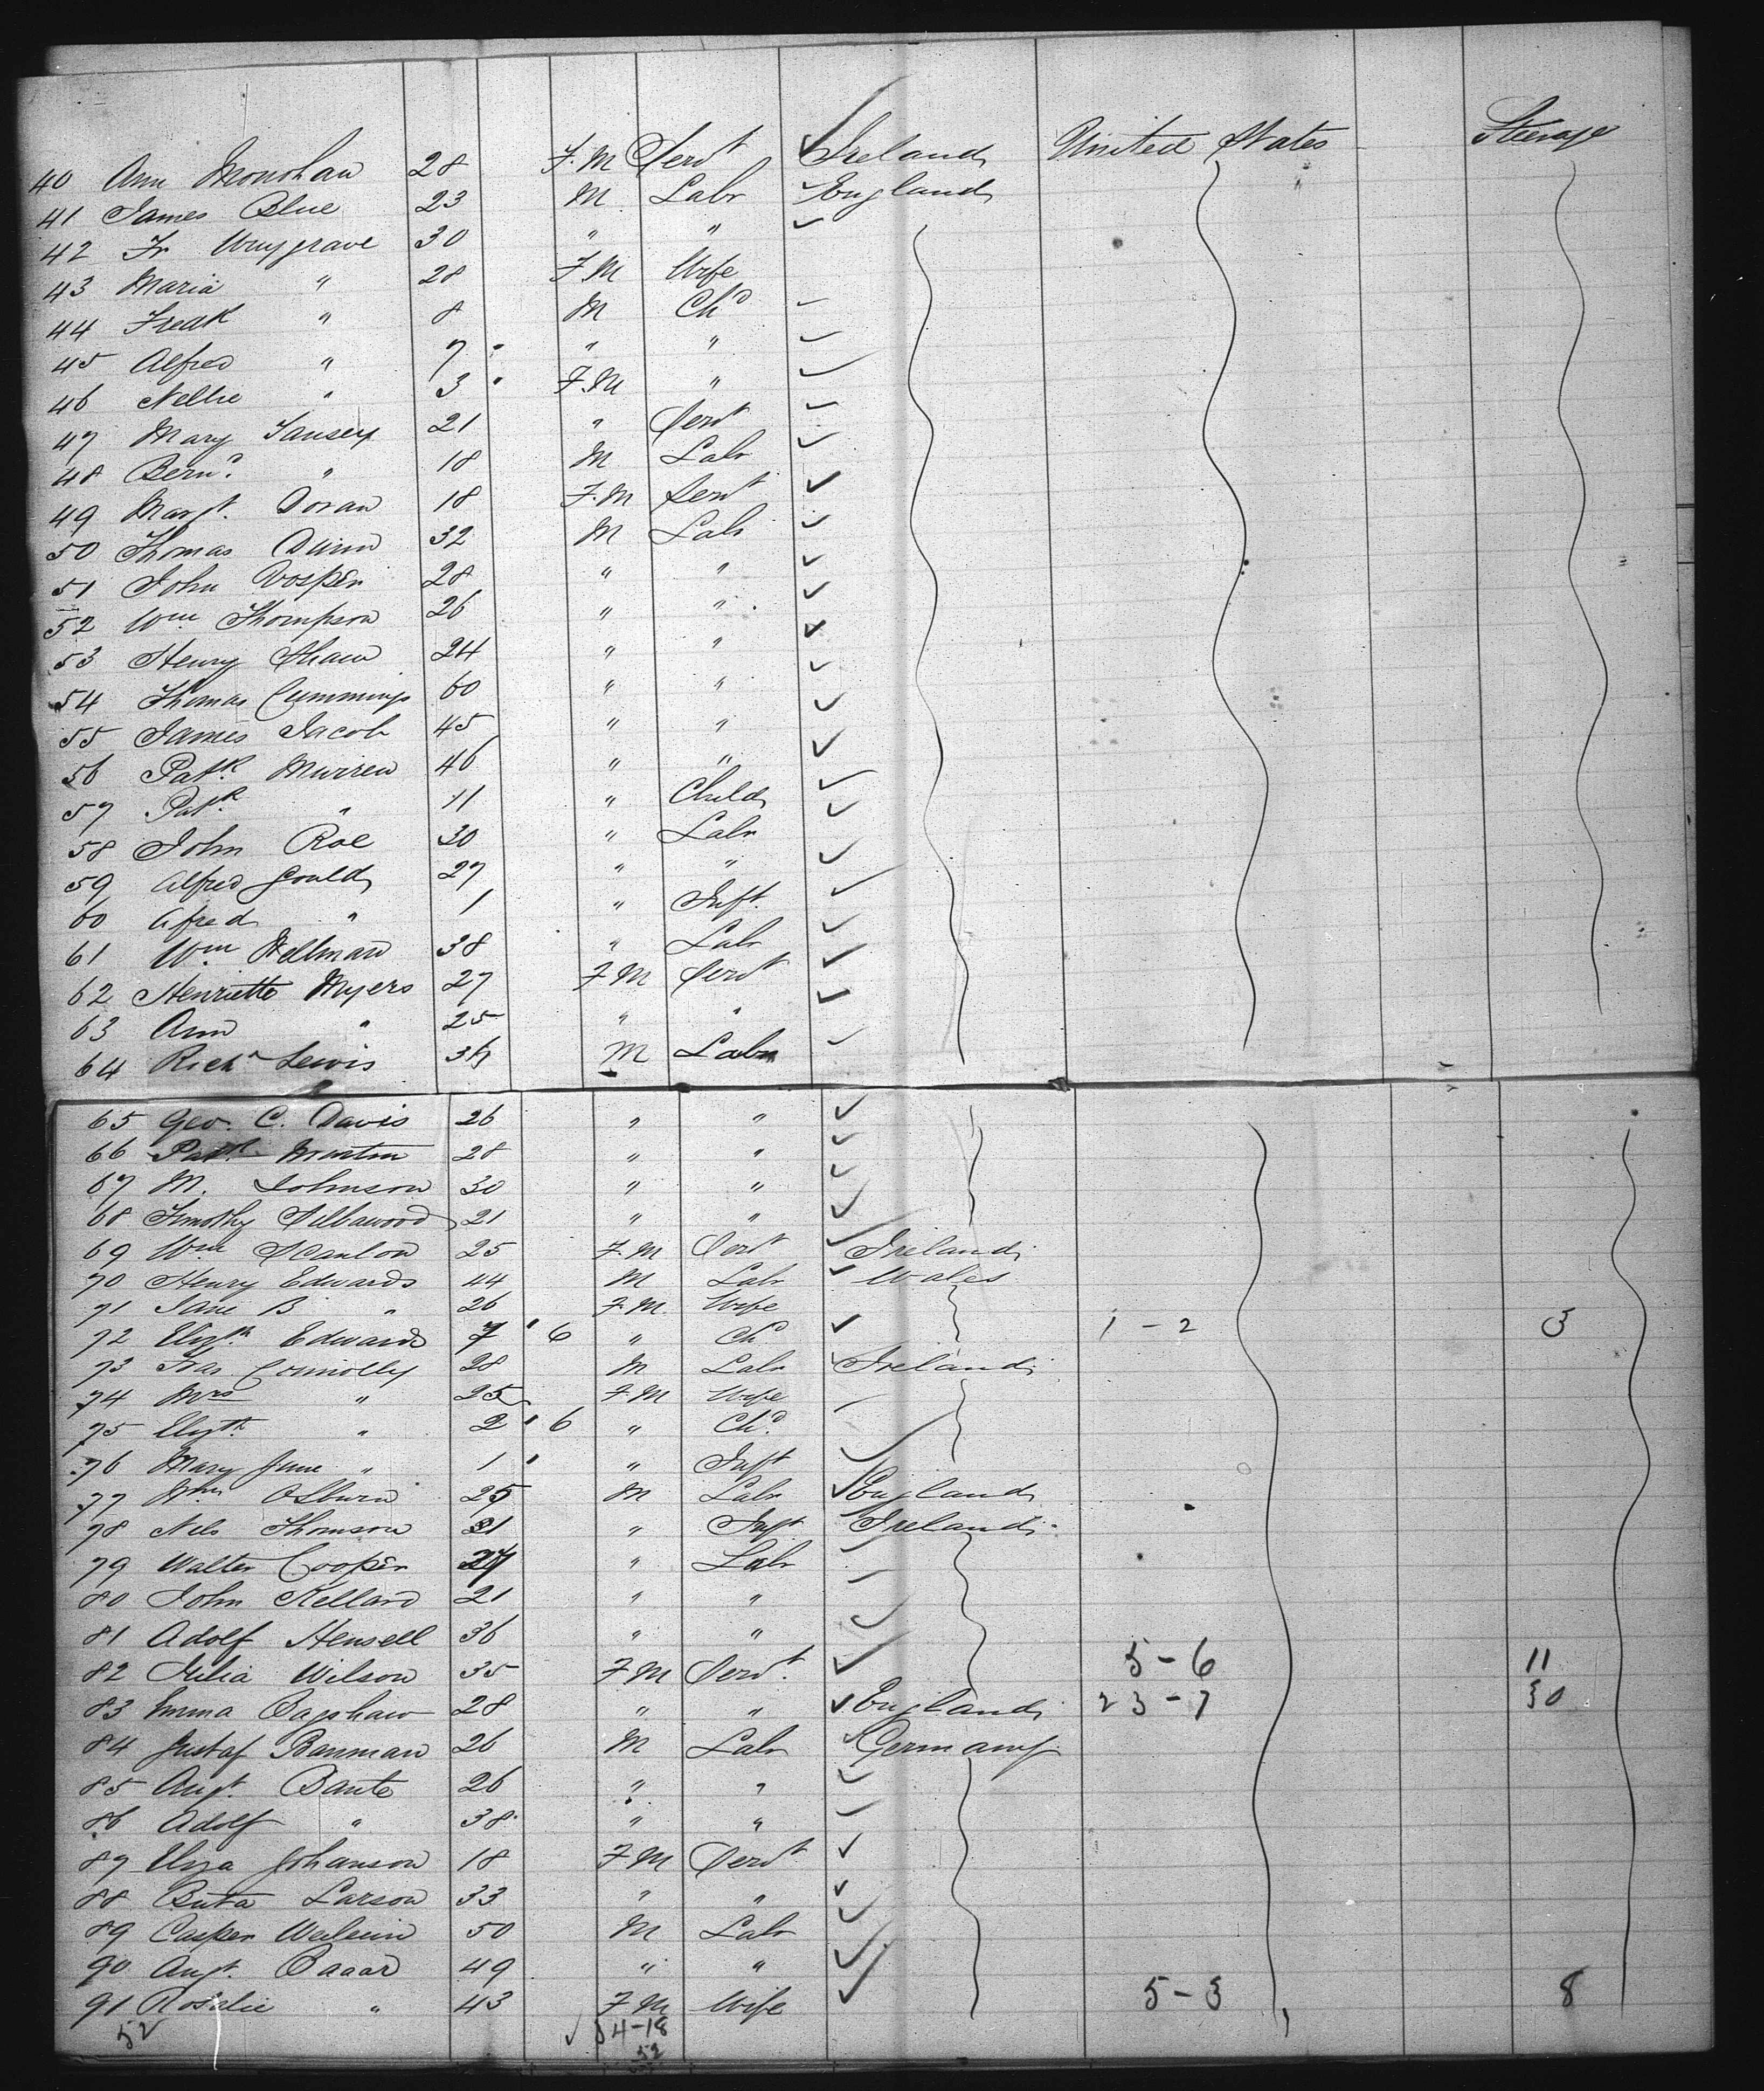 40 Ann Monohan 28 F.M Servt Ireland United States Steerage
41 James Blue 23 M Labr England
42 Fr Wingrave 30 " "
43 Maria " 28 F.M Wife
44 Fredk " 8 M Chd
45 Alfred " 7 " " "
46 Nellie " 3 " F.M "
47 Mary 21 " Servt
48 Bernd. " 18 M Labr
49 Margt. Doran 18 F.M Servt
50 Thomas Dunn 32 M Labr
51 John Vosper 28 " "
52 Wm Thompson 26 " "
53 Henry Shaw 24 " "
54 Thomas Cummings 60 " "
55 James Jacob 45 " "
56 Patk Murren 46 " "
57 Patk " 11 " Child
58 John Roe 30 " Labr
59 Alfred Gould 27 " "
60 Afred " 1 " Inft.
61 Wm Wellman 38 " Labr
62 Henriette Myers 27 F M Servt
63 Ann " 25 " "
64 Richd Lewis M Labr
65 Geo. C. Davis 26 " "
66 Patk. Martin 28 " "
67 M. Johnson 30 " "
68 Timothy 21 " "
69 Wm Scanlon 25 F.M Servt Ireland
70 Henry Edwards 44 M Labr Wales
71 Jane B " 26 F.M. Wife
72 Elizth Edwards 7 " 6 " Chd 1 - 2 3
73 Connolly 28 M Labr Ireland
74 Mrs " 25 F.M Wife
75 Elizth " 2 " 6 " Chd.
76 Mary Jane " 1 " " Inft
77 Wm Osburn 25 M Labr England
78 Nels Thomson " Ireland
79 Walter Cooper " Labr
80 John Kellard 21 " "
81 Adolf Hensell 36 " "
82 Julia Wilson 35 F M Servt. 5 - 6 11
83 Emma Bagshaw 28 " " England 23 - 7 30
84 Gustaf Banman 26 M Labr Germany
85 Augt. Bante 26 " "
86 Adolf " 38 " "
87 Eliza Johanson 18 F M Servt
88 Larson 33 " "
89 Casper 50 M Labr
90 Augt. Baaar 49 " "
91 Rosalie " 43 F M Wife 5 - 3 8
52 34-18
52